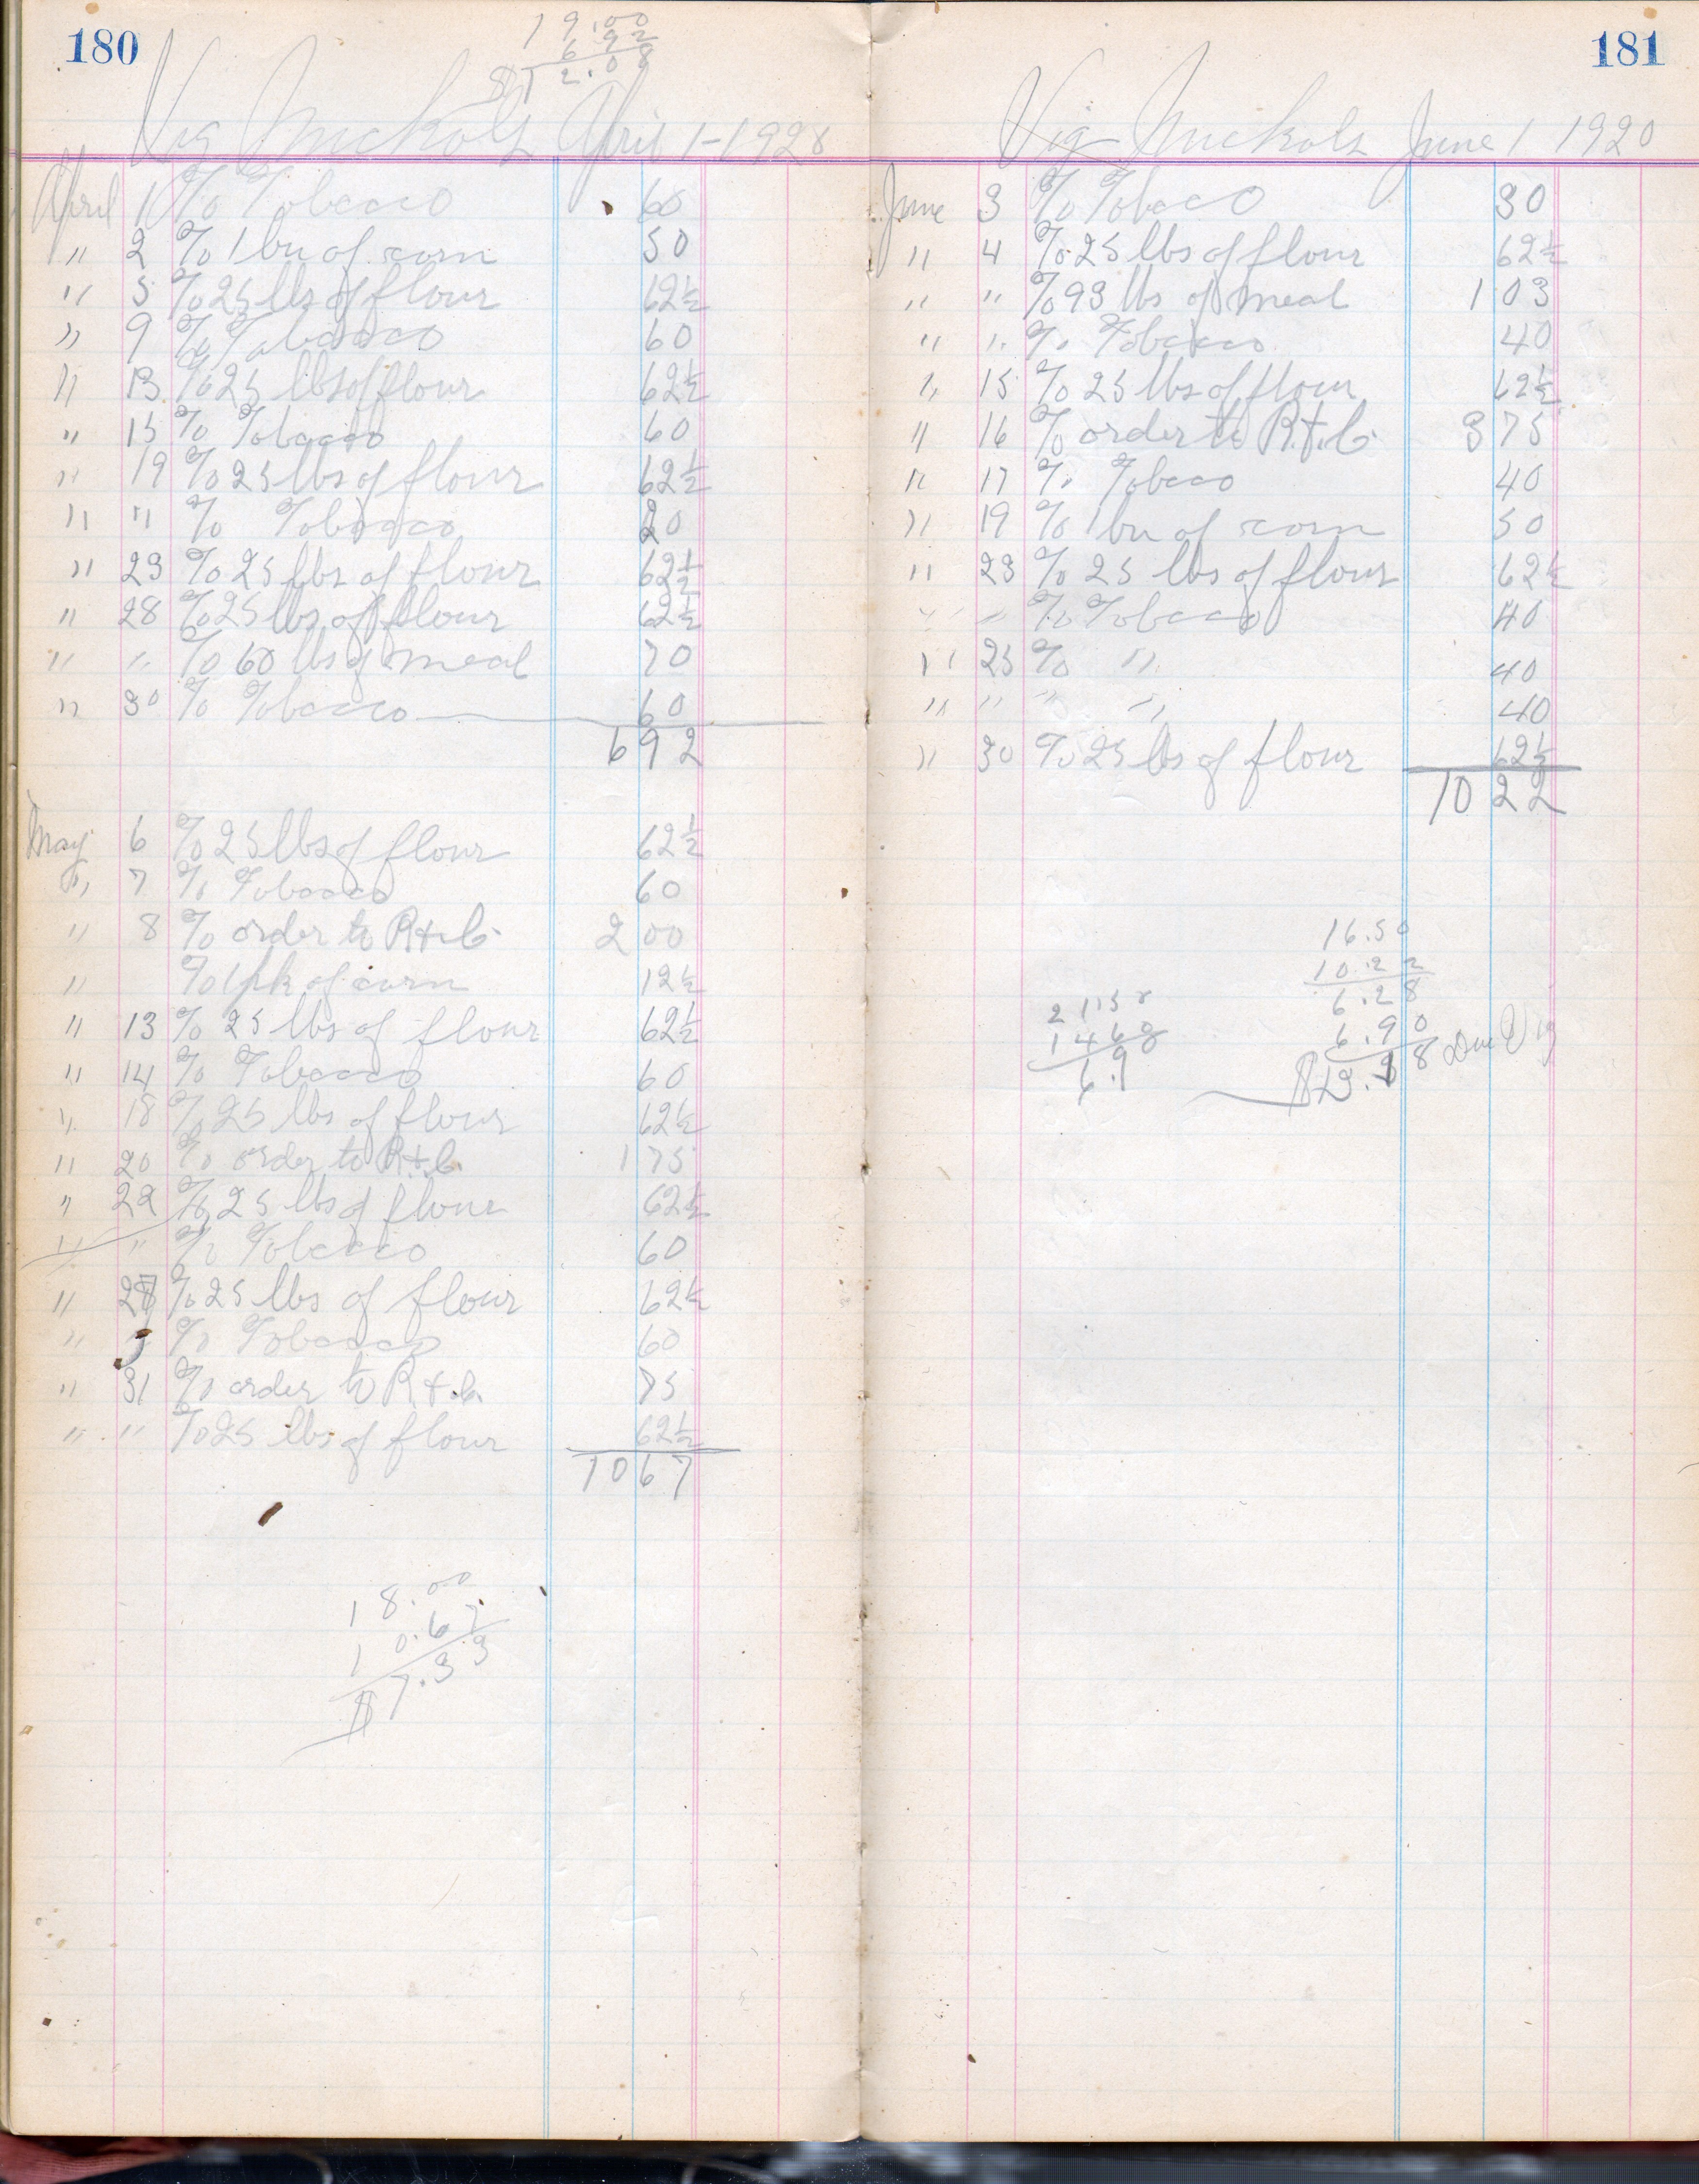 180
19.00
6 92
$12.08
Vig Nuckols April 1-1928
April 1 % Tobacco 60
" 2 % 1 bu of corn 50
" 5 % 25 lbs of flour 62½
" 9 % Tobacco 60
" 13 % 25 lbs of flour 62½
" 15 % Tobacco 60
" 19 % 25 lbs of flour 62½
" " % Tobacco 20
" 23 % 25 lbs of flour 62½
" 28 % 25 lbs of flour 62½
" " % 60 lbs of meal 70
" 30 % Tobacco 60
6 92
May 6 % 25 lbs of flour 62½
" 7 % Tobacco 60
" 8 % order to R+.C. 2 00
" % 1 pk of corn 12½
" 13 % 25 lbs of flour 62½
" 14 % Tobacco 60
" 18 % 25 lbs of flour 62½
" 20 % order to R+.C. 1 75
" 22 % 25 lbs of flour 62½
" " % Tobacco 60
" 27 % 25 lbs of flour 62½
" " % Tobacco 60
" 31 % order to R+.C. 75
" " % 25 lbs of flour 62½
10 67
18.00
10.67
$7.33
181
Vig Nuckols June 1 1920
June 3 % Tobaco 30
" 4 % 25 lbs of flour 62½
" " % 93 lbs of meal 1 03
" " % Tobacco 40
" 15 % 25 lbs of flour 62½
" 16 % order to R.+.C. 3 75
" 17 % Tobaco 40
" 19 % 1 bu of corn 50
" 23 % 25 lbs of flour 62½
" " % Tobacco 40
" 25 % " 40
" " " " 40
" 30 % 25 lbs of flour 62½
10 22
16.50
10.22
6.28
6.90
$13.18 Due Vig
21.58
14 68
6.9